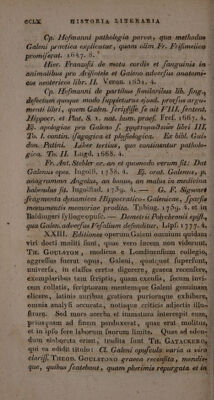 CCLX HISTORIA LITERARIA
Cp. Hofmanni pathologia parva, qua methodus
Galeni practica explicatur, quam olim Fr. Frisimelica
promiserat. 1647. 8.
Hier. Franzosi de motu cordis et sanguinis in
animalibus pro Aristotele et Galeno adversus anatomi-
cos neotericos libr. II. Veron. 1652. 4.
Cp. Hofmanni de partibus similaribus lib. sing.
defectum quoque modo suppleturus quod, prorsus argu-
menti libri, quem Galen. scripsisse se ait
Hippocr. et Plat. & 1. nat. hum. praef. Fref. 1667. 4.
Ej. apologiae pro Galeno s. χρηστομαθειῶν libri III.
To. I. contin. isagogica et physiologica. Ex bibl. Gui-
don. Patini. Liber tertius, quo continuatur patholo-
gica. To. II. Lugd. 1668. 4.
Fr. Ant. Stebler or. an et quomodo verum sit: Dat
Galenus opes. Ingolst. 1738. 4. Ej. orat. Galenus, per
anagramma Angelus, an bonus, an malus in medicina
habendus sit. Ingolstad. 1739. 4. — G. F. Sigwart
fragmenta dynamices Hippocratico-Galenicae, sparsis
monumentis memoriae prodita. Tubing. 1759. 4. et in
Baldingeri sylloge opusc. — Demetrii Polychronii epist.,
qua Galen. adversus Vesalium defenditur, Lips. 1777. 4.
XXIII. Editionem operum Galeni omnium quidam
viri docti moliti sunt, quae vero lucem non viderunt.
TH. GOULSTON, medicus e Londinensium collegio,
aggressus fuerat opus, Galeni, quotquot superfunt,
universa, in classes certas digerere, graeca recensere,
exemplaribus tam scriptis, quam excusis, secum invi-
cem collatis, scriptorum mentemque Galeni genuinam
elicere, latinis auribus gratiora plurioraque exhibere,
omnia analysi accurata, notisque criticis adjectis illu-
strare. Sed mors acerba et immatura intercepit eum,
priusquam ad finem perduxerat, quae erat molitus,
et in ipso fere laborum suorum limite. Quae ad eden-
dum elaborata erant, tradita sunt TH. GATACKERO,
qui ea edidit titulo: Cl. Galeni opuscula varia a viro
clariss. THEOD. GOULSTONO graeca recensita, mendis-
que, quibus scatebant, quam plurimis repurgata et in